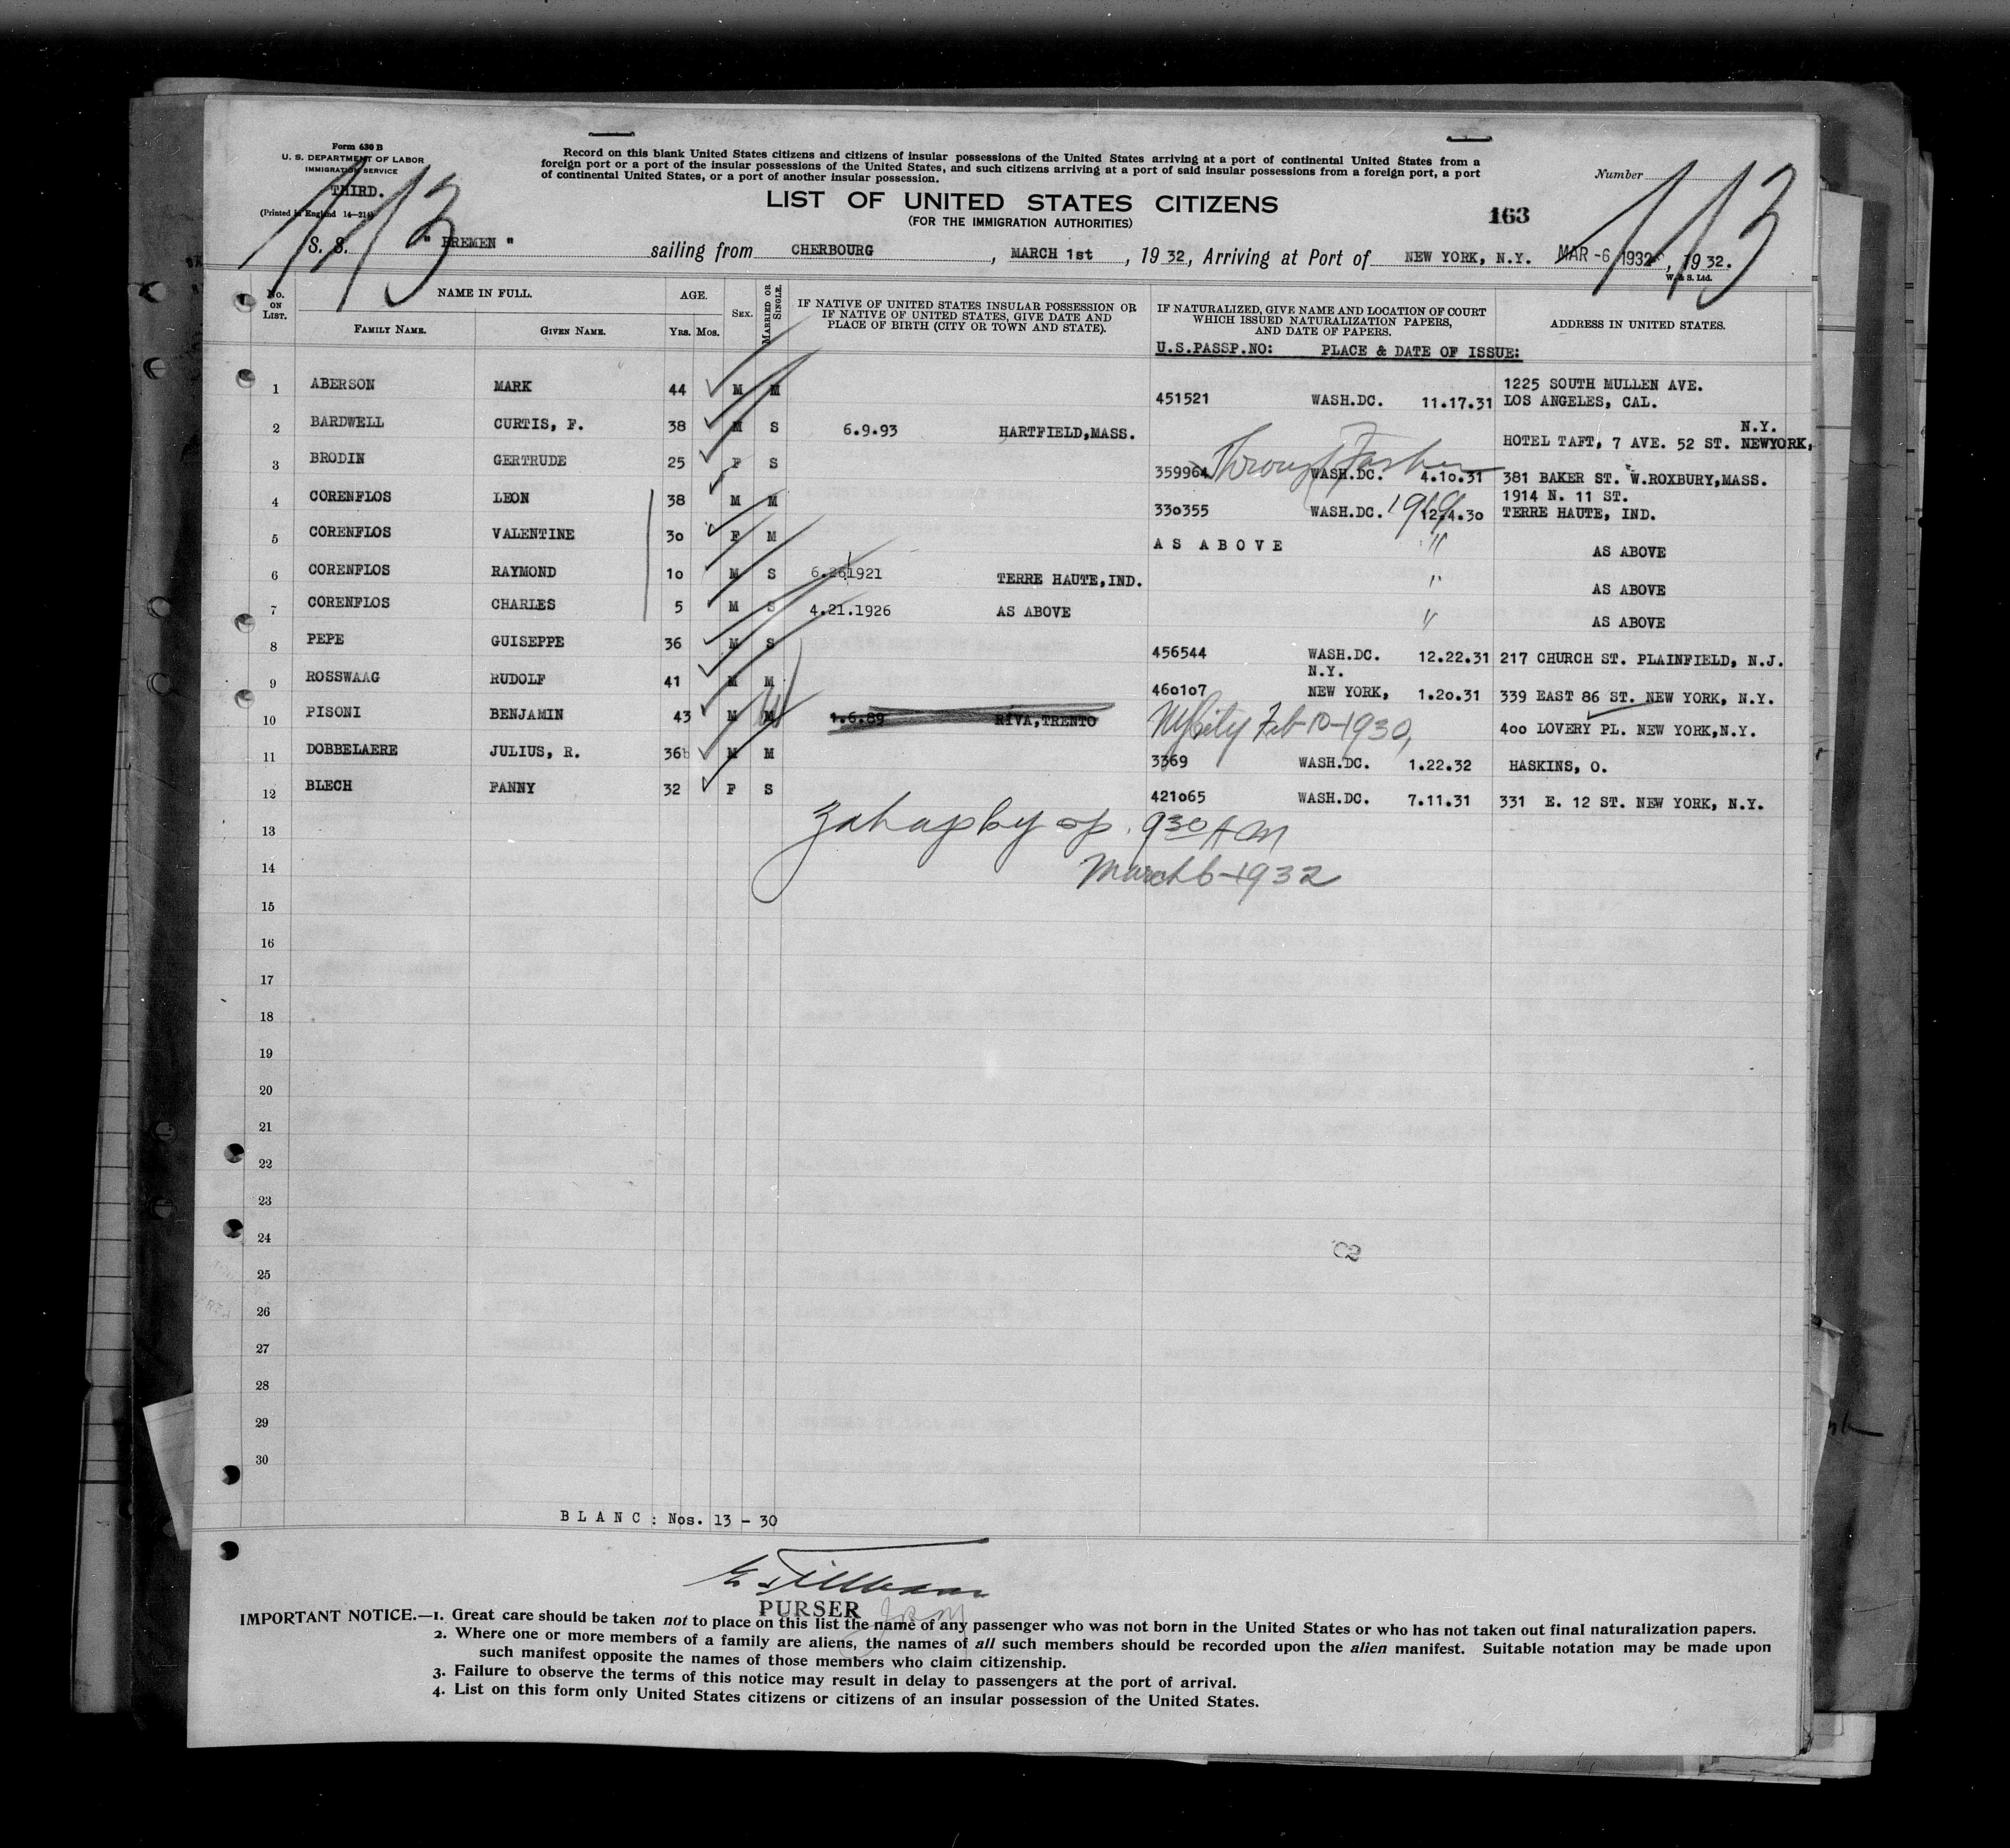 Form 630 B
U. S. DEPARTMENT OF LABOR
IMMIGRATION SERVICE
THIRD.
(Printed in England 14—214)
113
Record on this blank United States citizens and citizens of insular possessions of the United States arriving at a port of continental United States from a
foreign port or a port of the insular possessions of the United States, and such citizens arriving at a port of said insular possessions from a foreign port, a port
of continental United States, or a port of another insular possession.
Number
113
LIST OF UNITED STATES CITIZENS
(FOR THE IMMIGRATION AUTHORITIES)
163
S. S. " BREMEN " sailing from CHERBOURG, MARCH 1st, 19 32, Arriving at Port of NEW YORK, N.Y. MAR -6 1932, 19 32.
W. & S. Ltd.
No. ON LIST. NAME IN FULL. AGE. SEX. MARRIED OR SINGLE. IF NATIVE OF UNITED STATES INSULAR POSSESSION OR IF NATIVE OF UNITED STATES, GIVE DATE AND PLACE OF BIRTH (CITY OR TOWN AND STATE). IF NATURALIZED, GIVE NAME AND LOCATION OF COURT WHICH ISSUED NATURALIZATION PAPERS, AND DATE OF PAPERS. ADDRESS IN UNITED STATES.
FAMILY NAME. GIVEN NAME. Yrs. Mos.
U.S.PASSP.NO: PLACE & DATE OF ISSUE:
1 ABERSON MARK 44 M M 451521 WASH.DC. 11.17.31 1225 SOUTH MULLEN AVE. LOS ANGELES, CAL.
2 BARDWELL CURTIS, F. 38 M S 6.9.93 HARTFIELD,MASS. HOTEL TAFT, 7 AVE. 52 ST. NEWYORK, N.Y.
3 BRODIN GERTRUDE 25 F S 359964 Through Father WASH.DC. 4.10.31 381 BAKER ST. W.ROXBURY,MASS.
4 CORENFLOS LEON 38 M M 330355 WASH.DC. 12.4.30 1914 N. 11 ST. TERRE HAUTE, IND.
5 CORENFLOS VALENTINE 30 F M AS ABOVE " AS ABOVE
6 CORENFLOS RAYMOND 10 M S 6.26.1921 TERRE HAUTE,IND. " AS ABOVE
7 CORENFLOS CHARLES 5 M S 4.21.1926 AS ABOVE " AS ABOVE
8 PEPE GUISEPPE 36 M S 456544 WASH.DC. 12.22.31 217 CHURCH ST. PLAINFIELD, N.J.
9 ROSSWAAG RUDOLF 41 M M 460107 NEW YORK, N.Y. 1.20.31 339 EAST 86 ST. NEW YORK, N.Y.
10 PISONI BENJAMIN 43 M M 1.6.89 RIVA,TRENTO NYCity Feb-10-1930, 400 LOVERY PL. NEW YORK,N.Y.
11 DOBBELAERE JULIUS, R. 36 M M 3369 WASH.DC. 1.22.32 HASKINS, O.
12 BLECH FANNY 32 F S 421065 WASH.DC. 7.11.31 331 E. 12 ST. NEW YORK, N.Y.
13 930 AM
14 March 6-1932
15
16
17
18
19
20
21
22
23
24
25
26
27
28
29
30
BLANC: Nos. 13 - 30
PURSER
IMPORTANT NOTICE.—1. Great care should be taken not to place on this list the name of any passenger who was not born in the United States or who has not taken out final naturalization papers.
2. Where one or more members of a family are aliens, the names of all such members should be recorded upon the alien manifest. Suitable notation may be made upon
such manifest opposite the names of those members who claim citizenship.
3. Failure to observe the terms of this notice may result in delay to passengers at the port of arrival.
4. List on this form only United States citizens or citizens of an insular possession of the United States.